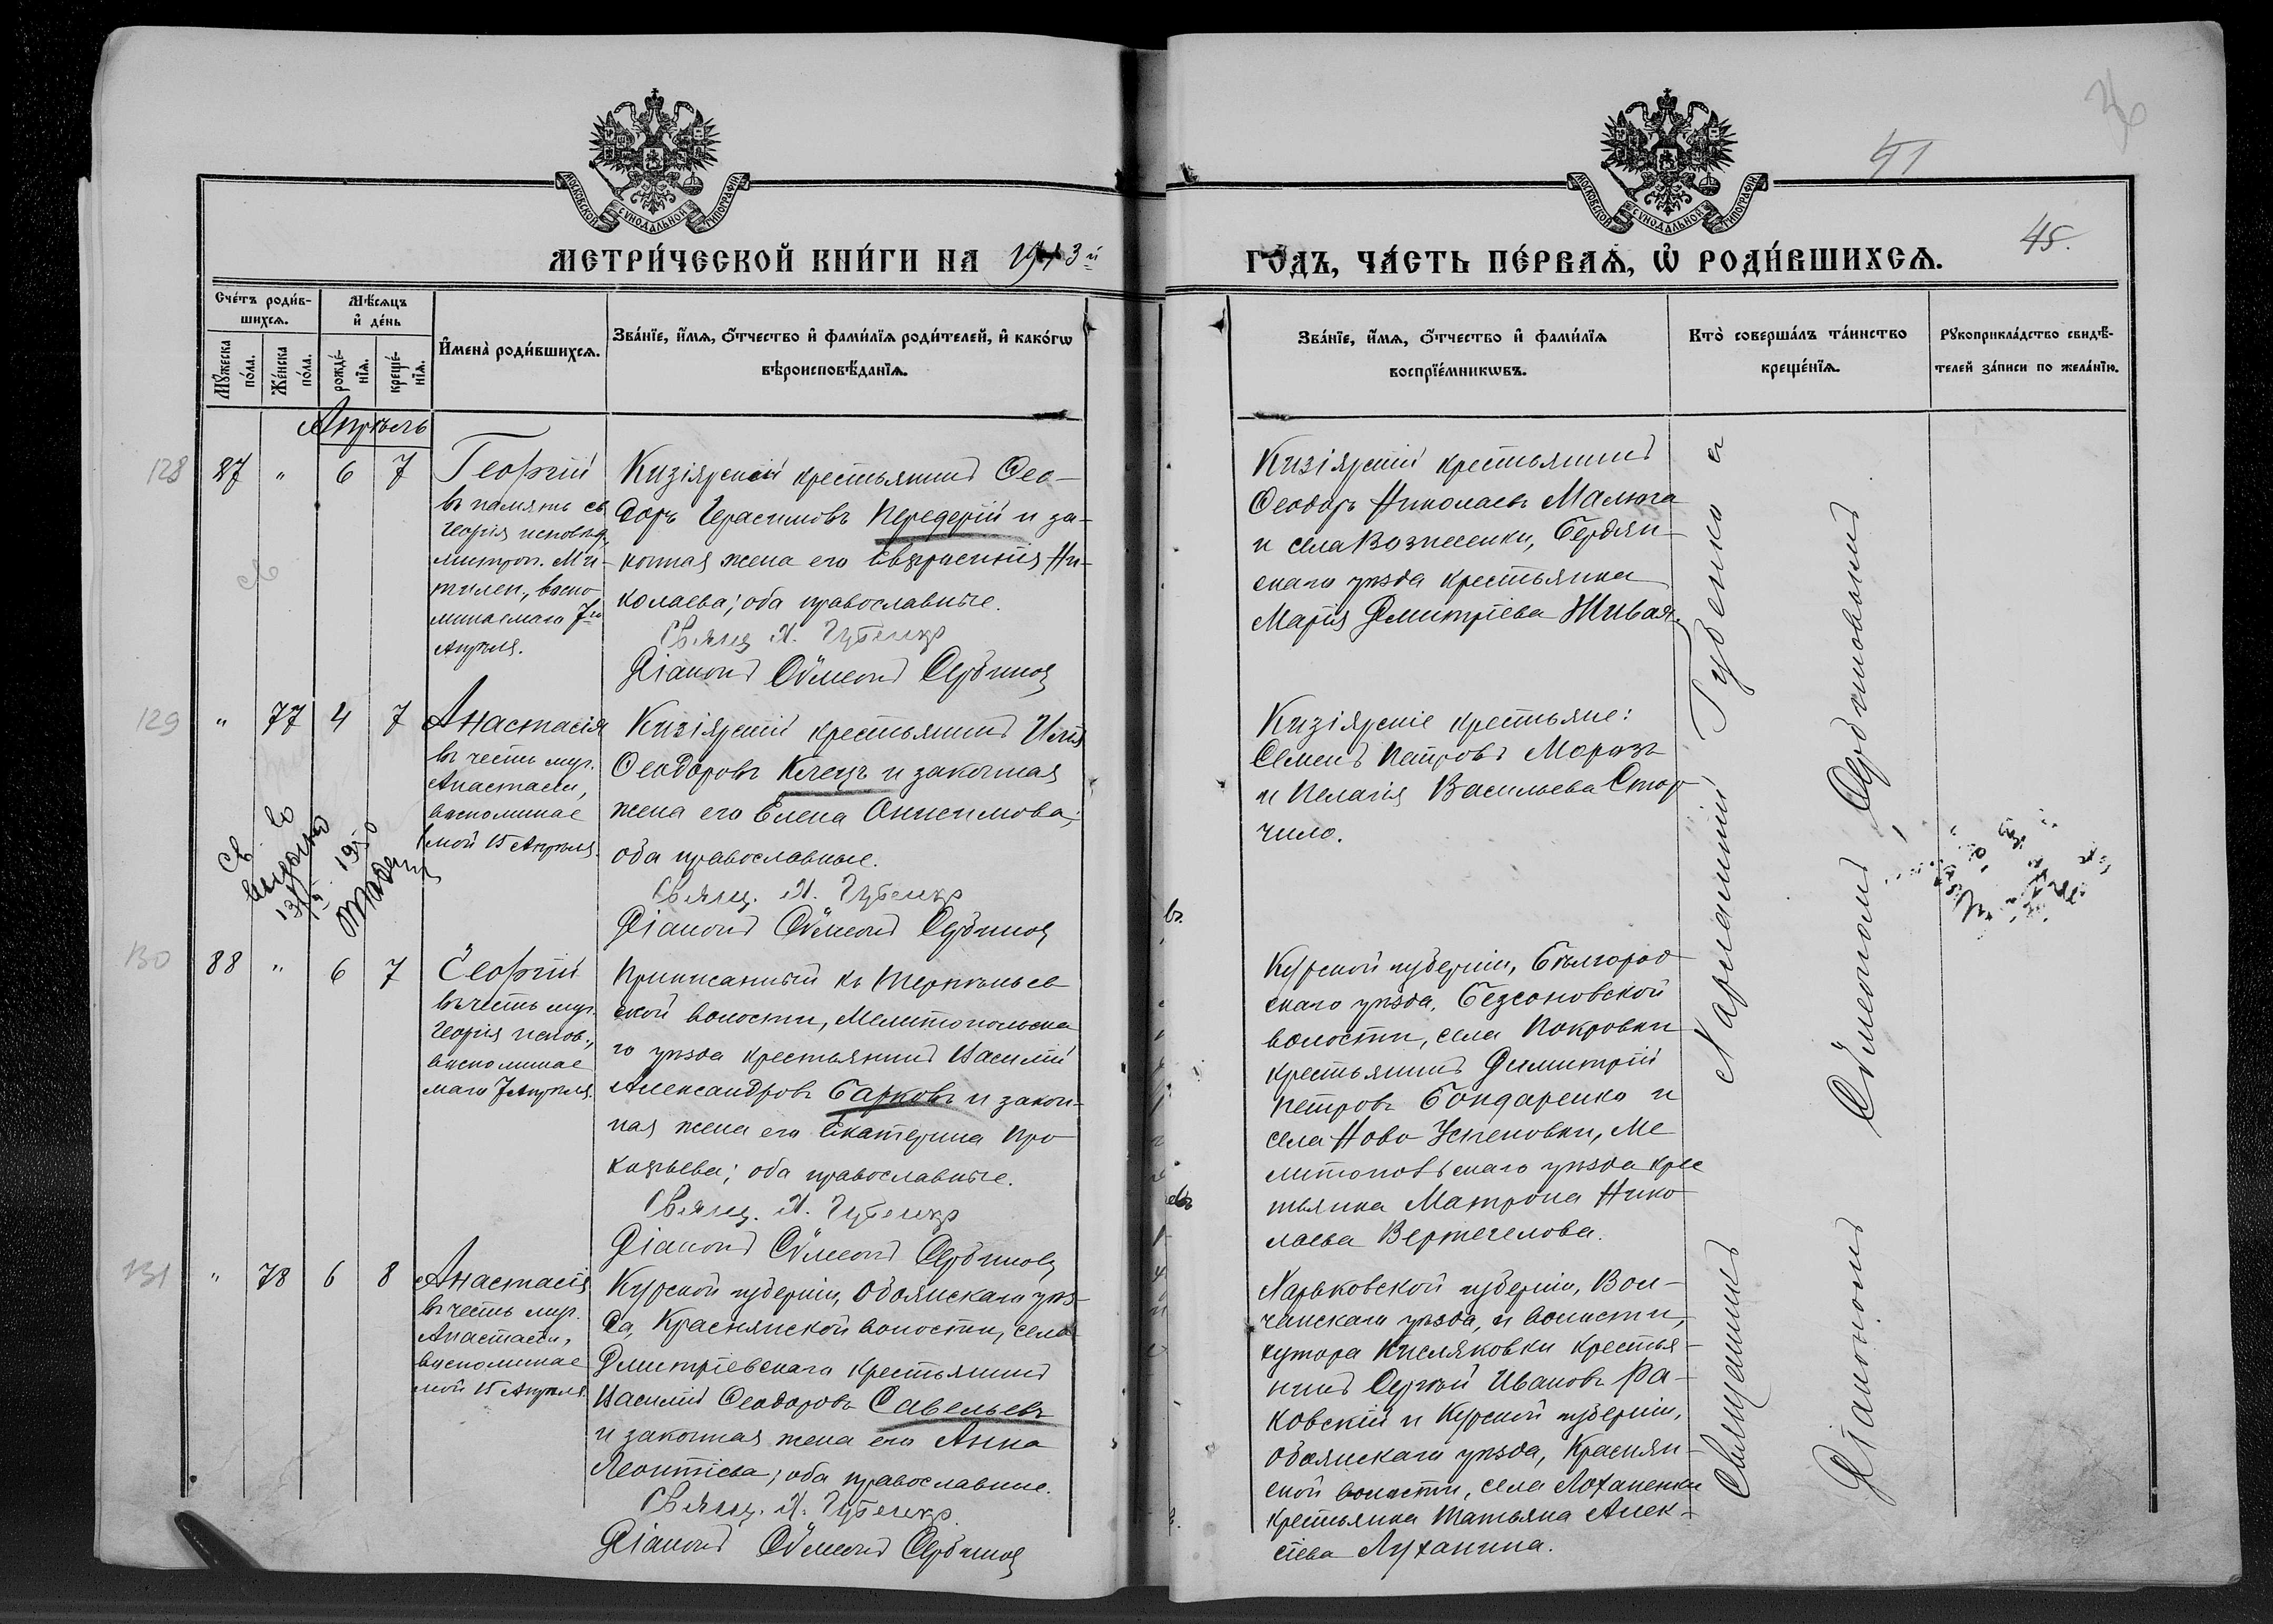 46
51
45.
МОСКОВСКОЙ СѴНОДАЛЬНОЙ ТИПОГРАФІИ
МОСКОВСКОЙ СѴНОДАЛЬНОЙ ТИПОГРАФІИ
МЕТРИ́ЧЕСКОЙ КНИ́ГИ НА 1913й
ГО́ДЪ, ЧА́СТЬ ПЕ́РВАѦ, Ѡ҆ РОДИ́ВШИХСѦ.
Сче́тъ роди́в-
шихсѧ.
Мꙋ́жеска
по́ла.
Же́нска
по́ла.
Мѣ́сѧцъ
и҆ де́нь
рожде́-
нїѧ.
креще́-
нїѧ.
И҆мена̀ роди́вшихсѧ.
Зва́нїе, и҆́мѧ, ѻ҆́тчество и҆ фами́лїѧ роди́телей, и҆ како́гѡ
вѣ́роисповѣ́данїѧ.
Зва́нїе, и҆́мѧ, ѻ҆́тчество и҆ фами́лїѧ
воспрїе́мникѡвъ.
Кто̀ соверша́лъ та́инство
креще́нїѧ.
Рꙋкоприкла́дство свидѣ́-
телей за́писи по жела́нїю.
Апрѣль
128 87 " 6 7
Георгій
въ память св
Георгія исповѣд.
митроп. Ми-
тилен., воспо
минаемаго 7го
Апрѣля.
Кизіярскій крестьянинъ Ѳео-
доръ Герасимовъ Передерій и за-
конная жена его Евфросинія Ни-
колаева; оба православные.
Свящ. Х. Губенко
Діаконъ Сѵмеонъ Сербинов
Кизіярскій крестьянинъ
Ѳеодоръ Николаевъ Малюга
и села Вознесенки, Бердян-
скаго уѣзда крестьянка
Марія Димитріева Живая.
129 " 77 4 7
Анастасія
въ честь муч.
Анастасіи,
воспоминае
мой 15 Апрѣля.
Кизіярскій крестьянинъ Илія
Ѳеодоровъ Клецъ и законная
жена его Елена Онисимова;
оба православные.
Свящ. Х. Губенко
Діаконъ Сѵмеонъ Сербинов
Кизіярскіе крестьяне:
Семенъ Петровъ Морозъ
и Пелагія Васильева Стор
чило.
130 88 " 6 7
Георгій
въ честь муч.
Георгія испов.,
воспоминае
маго 7 Апрѣля.
Приписанный къ Терпѣньев
ской волости, Мелитопольска
го уѣзда крестьянинъ Василій
Александровъ Барковъ и закон-
ная жена его Екатерина Про
кофьева; оба православные.
Свящ. Х. Губенко
Діаконъ Сѵмеонъ Сербинов
Курской губерніи, Бѣлгород
скаго уѣзда, Безсоновской
волости, села Покровки
крестьянинъ Димитрій
Петровъ Бондаренко и
села Ново Успеновки, Ме
литопольскаго уѣзда крес
тьянка Матрона Нико
лаева Вертегелова.
131 " 78 6 8
Анастасія
въ честь муч.
Анастасіи,
воспоминае
мой 15 Апрѣля.
Курской губерніи, Обоянскаго уѣз-
да, Краснянской волости, села
Дмитріевскаго крестьянинъ
Василій Ѳеодоровъ Савельевъ
и законная жена его Анна
Леонтіева; оба православные.
Свящ. Х. Губенко.
Діаконъ Сѵмеонъ Сербинов
Харьковской губерніи, Вол-
чанскаго уѣзда, и волости,
хутора Кисляковки крестья-
нинъ Сергѣй Ивановъ Ра-
ковскій и Курской губерніи,
Обоянскаго уѣзда, Краснян-
ской волости, села Лоханенки
крестьянка Татьяна Алек-
сіева Луханина.
Священникъ Харлампій Губенко съ
Діакономъ Сѵмеономъ Сербиновымъ